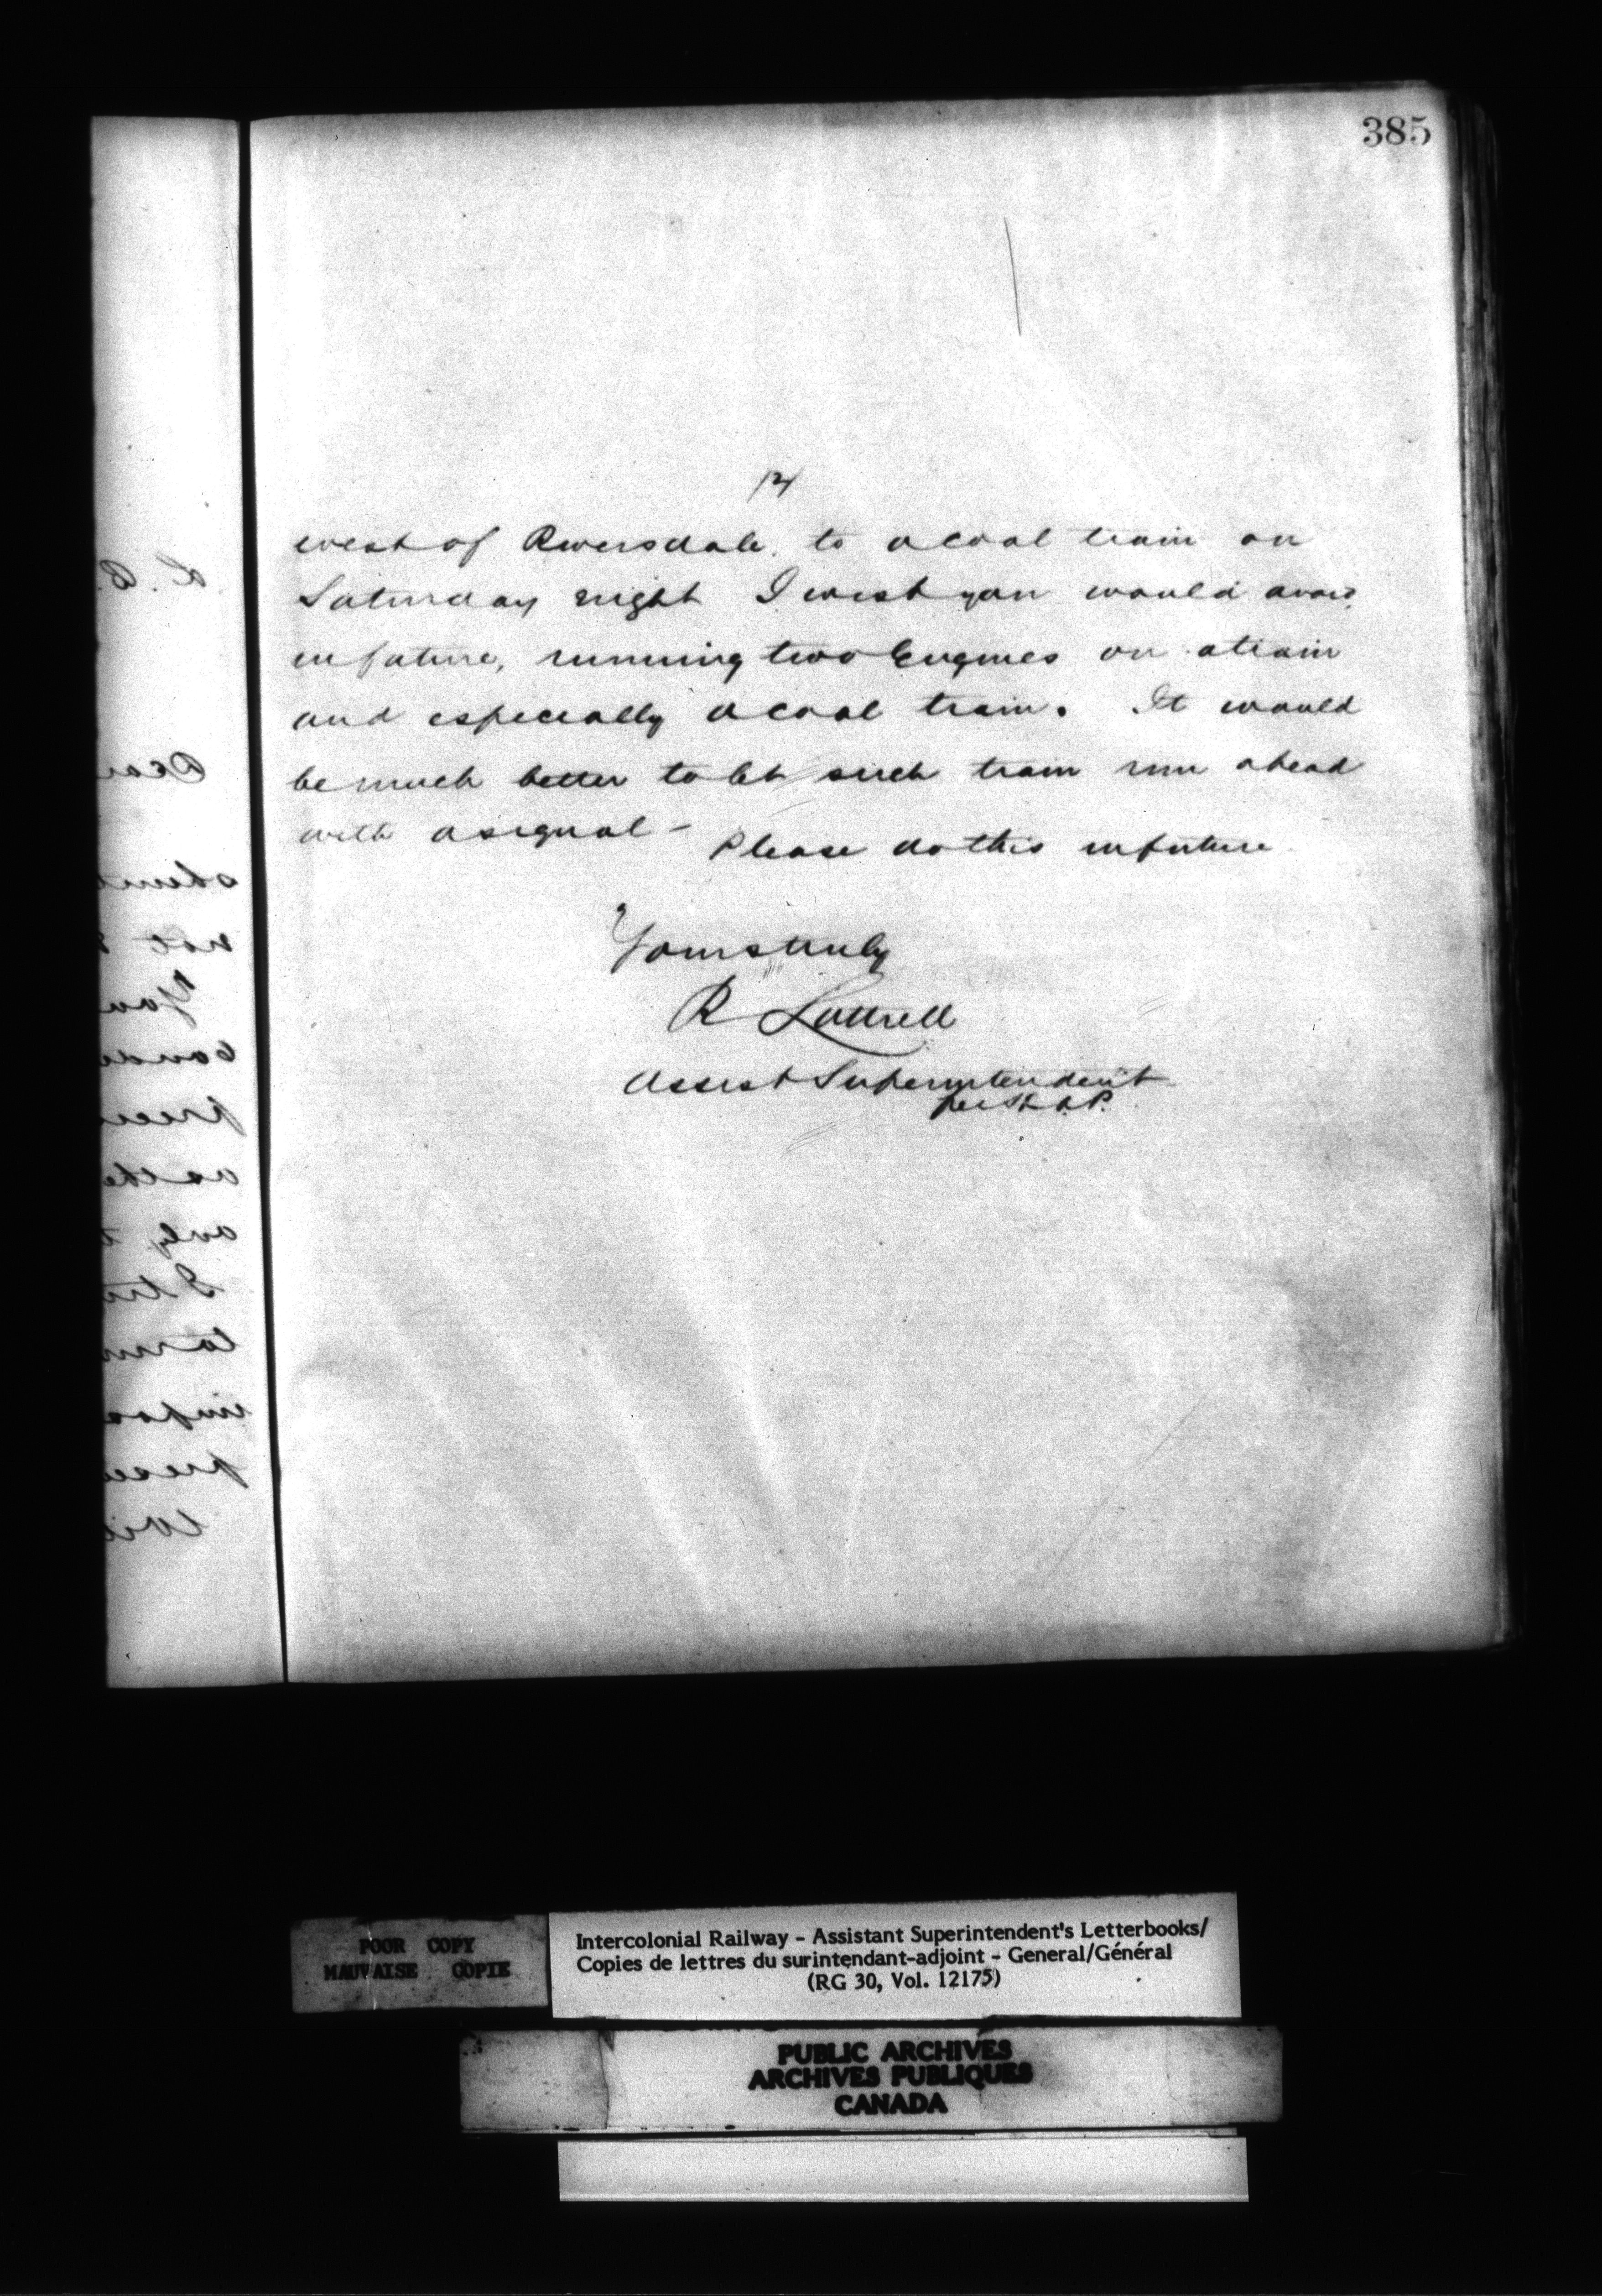 385
/2/
west of Riversdale. to a coal train on
Saturday night I wish you would avoid
in future, running two Engines on a train
and especially a coal train. It would
be much better to let such train run ahead
with a signal -
Please do this in future
Yours truly
R Luttrell
Assist Superintendent
per
L. B.
Dear
not
You
only
POOR COPY
MAUVAISE COPIE
Intercolonial Railway - Assistant Superintendent's Letterbooks/
Copies de lettres du surintendant-adjoint - General/Général
(RG 30, Vol. 12175)
PUBLIC ARCHIVES
ARCHIVES PUBLIQUES
CANADA